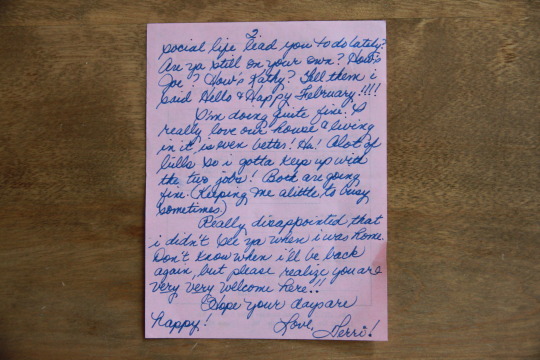 2.
social life lead you to do lately?
Are ya still on your own? How's
Joe? How's Kathy? Tell them i
said Hello & Happy February!!!!
I'm doing quite fine. I
really love our house & living
in it is even better! Ha! Alot of
bills so i gotta keep up wid
the two jobs! Both are going
fine. (Keeping me alittle to busy
sometimes)
Really disappointed that
i didn't see ya when i was home.
Don't know when i'll be back
again, but please realize you are
very very welcome here!!
Hope your days are
happy!
Love, Terri!